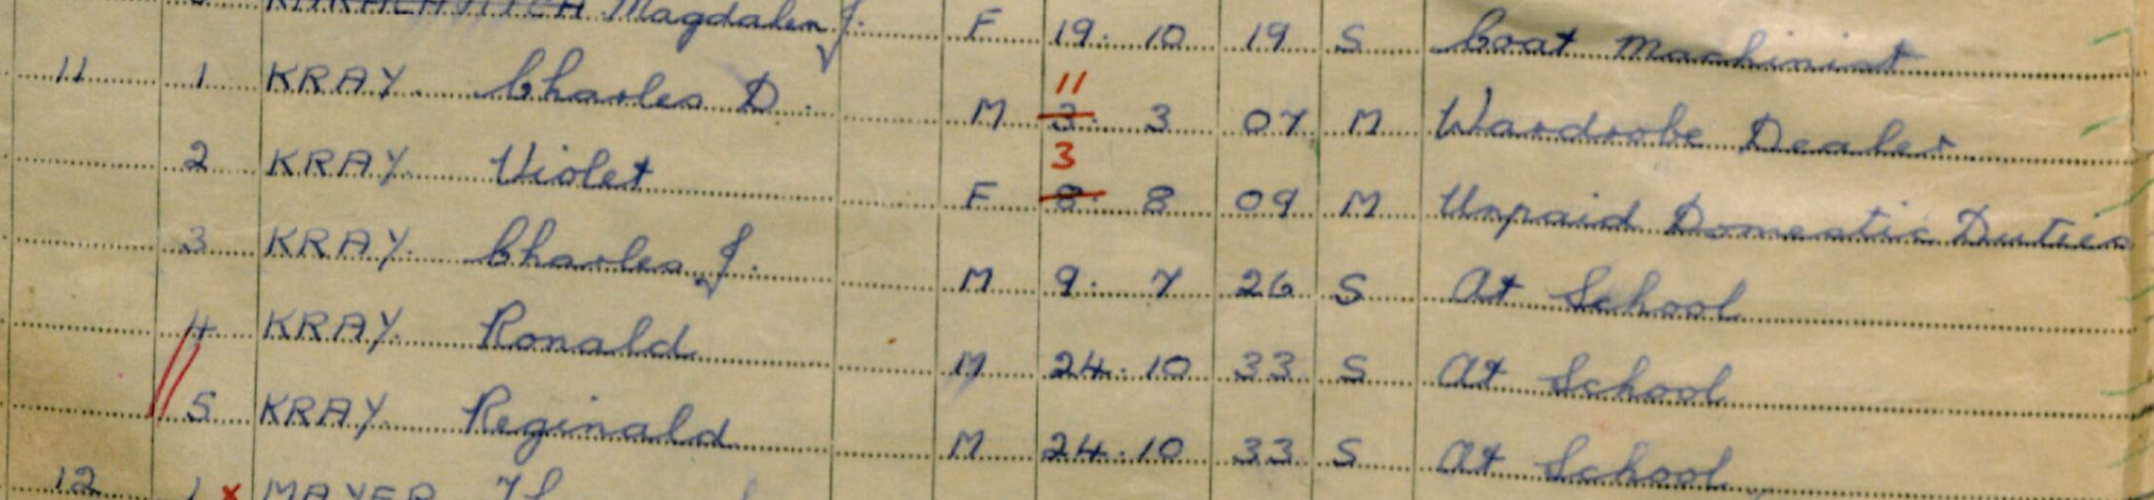 Magdalen J. F 19. 10 19 S Coat Machinist
11 1 KRAY. Charles D. M 11 3. 3 07 M Wardrobe Dealer
2 KRAY. Violet F 3 8. 8 09 M Unpaid Domestic Duties
3 KRAY. Charles J. M 9. 7 26 S At School
4 KRAY. Ronald M 24. 10 33 S At School
5 KRAY. Reginald M 24. 10 33 S At School
12 1 x MAYER